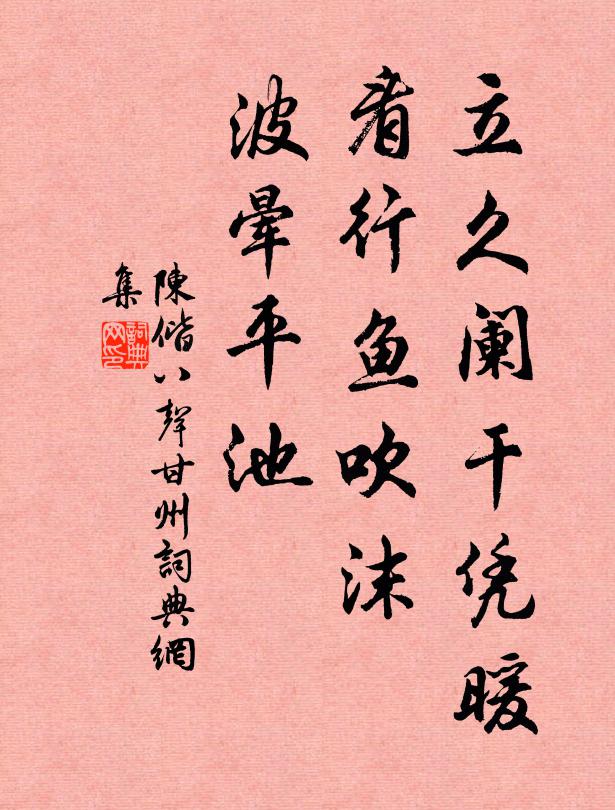 立久阑干凭暖
看行鱼吹沫
波晕平池
陳偕八聲甘州詞典網
集
詞典
网印